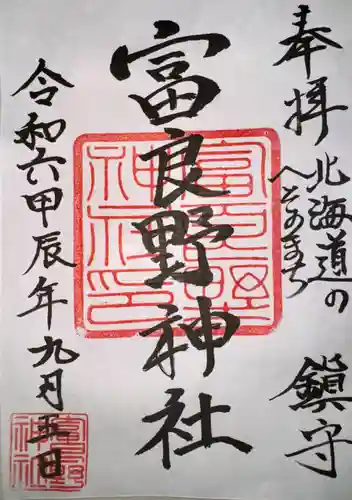 奉拝
北海道の
へそのまち
鎮守
富良野神社
令和六甲辰年九月五日
富良野
神社印
富良野
神社